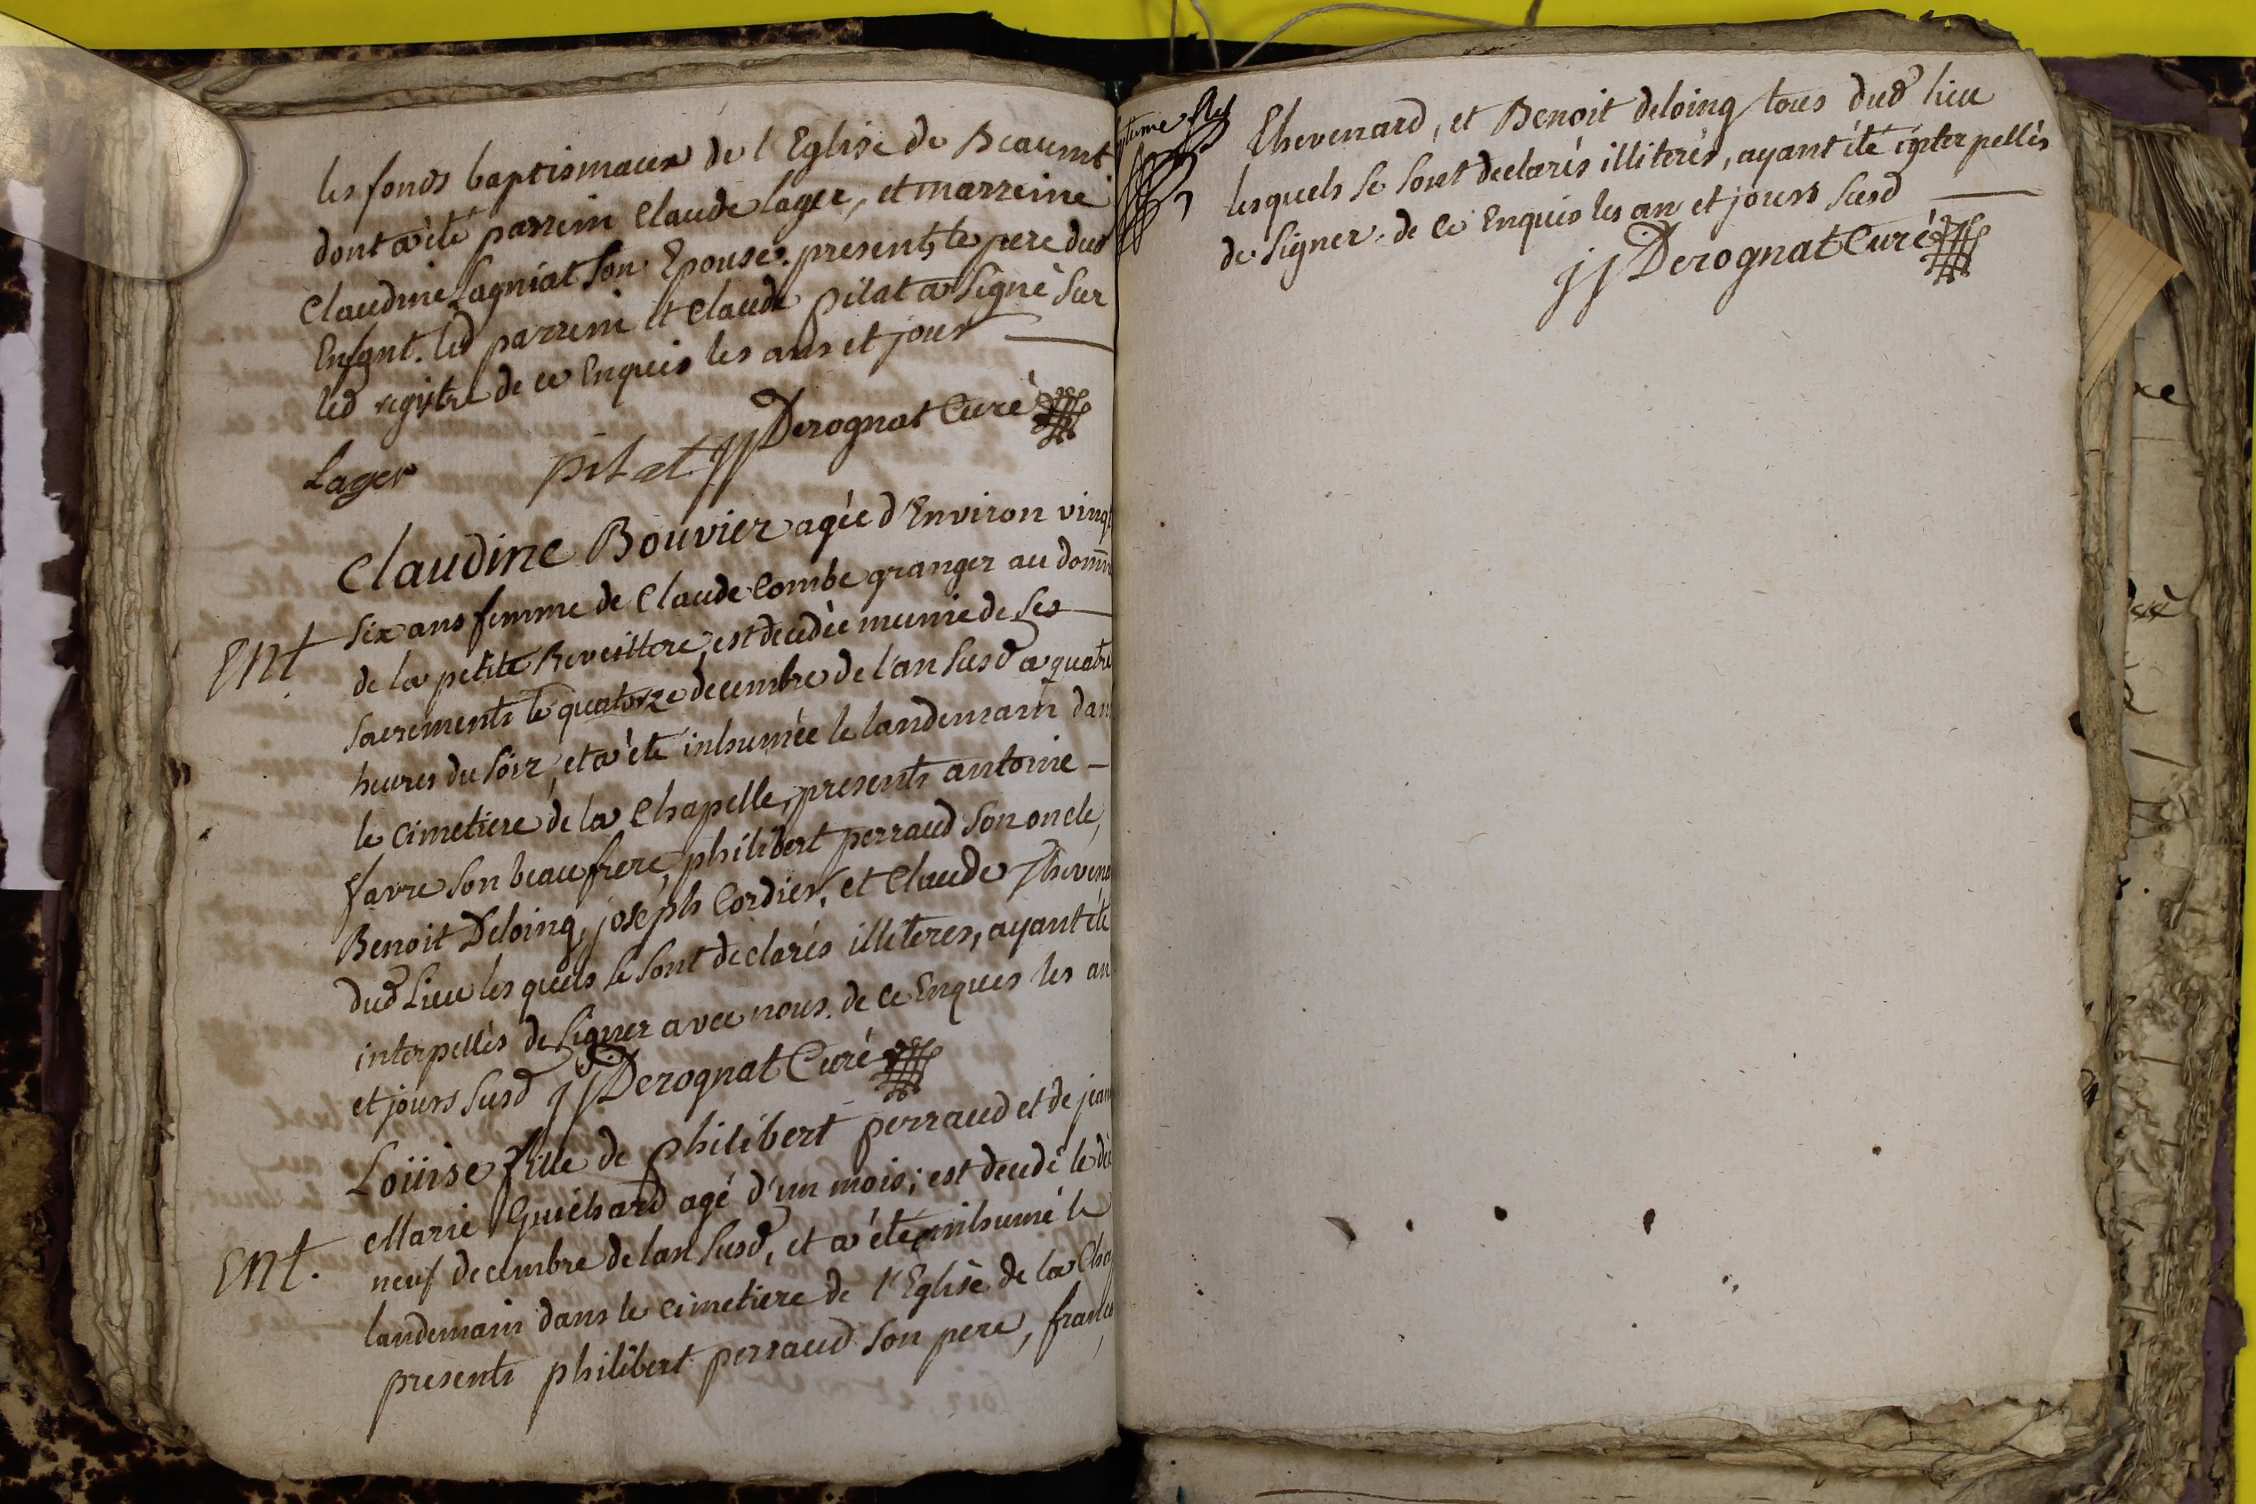 les fonds baptismaux de l'Eglise de Beaumt
dont a èté parrein Claude lager, et marreine
Claudine Lagniat son Epouse. presents le pere dud
Enfant. led parrein et Claude pilat a signè sur
led registre de ce Enquis les ans et jour
Lager pilat JJ Derognat Curè
Claudine Bouvier agèe d'Environ vingt
six ans femme de Claude Combe granger au domne
de la petite Reveillere, est decedèe munie de ses
Ent
sacrements le quatorze decembre de l'an susd a quatre
heures du soir, et a èté inhumèe le landemain dans
le Cimetiere de la Chapelle, presents antoine
favre son beaufrere, philibert perraud son oncle,
Benoit Deloing, joseph Cordier, et Claude Theven
dud Lieu lesquels se sont declarès illiteres, ayant èté
interpellès de signer avec nous. de ce Enques les an
et jours susd JJ Derognat Curè
Loüise fille de philibert perraud et de jean
Marie Guichard agé d'un mois; est decedé le dix
Ent.
neuf decembre de lan susd, et a èté inhumé le
landemain dans le cimetiere de l'Eglise de la Cha
presents philibert perraud son pere, franc
Thevenard, et Benoit deloing tous dud lieu
lesquels se sont declarès illiterès, ayant été interpellès
de signer. de ce Enquis les an et jours susd
JJ Derognat Curè